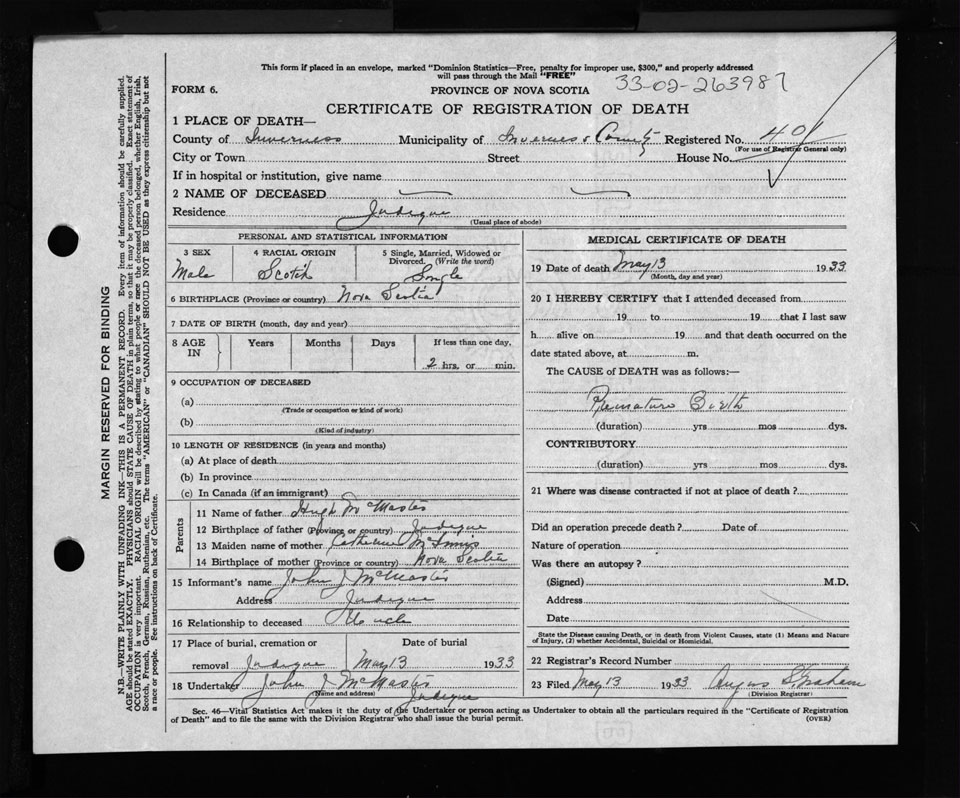 This form if placed in an envelope, marked "Dominion Statistics—Free, penalty for improper use, $300," and properly addressed
will pass through the Mail "FREE"
33-02-263987
FORM 6.
PROVINCE OF NOVA SCOTIA
CERTIFICATE OF REGISTRATION OF DEATH
1 PLACE OF DEATH—
County of Inverness Municipality of Inverness County Registered No. 401
(For use of Registrar General only)
City or Town Street House No.
If in hospital or institution, give name
2 NAME OF DECEASED
Residence Judique
(Usual place of abode)
PERSONAL AND STATISTICAL INFORMATION
3 SEX 4 RACIAL ORIGIN 5 Single, Married, Widowed or
Divorced. (Write the word)
Male Scotch Single
6 BIRTHPLACE (Province or country) Nova Scotia
7 DATE OF BIRTH (month, day and year)
8 AGE IN Years Months Days If less than one day,
2 hrs. or min.
9 OCCUPATION OF DECEASED
(a)
(Trade or occupation or kind of work)
(b)
(Kind of industry)
10 LENGTH OF RESIDENCE (in years and months)
(a) At place of death
(b) In province
(c) In Canada (if an immigrant)
Parents
11 Name of father Hugh McMaster
12 Birthplace of father (Province or country) Judique
13 Maiden name of mother Catherine McInnis
14 Birthplace of mother (Province or country) Nova Scotia
15 Informant's name John J McMaster
Address Judique
16 Relationship to deceased Uncle
17 Place of burial, cremation or Date of burial
removal Judique May 13 1933
18 Undertaker John J McMaster
(Name and address) Judique
MEDICAL CERTIFICATE OF DEATH
19 Date of death May 13 1933
(Month, day and year)
20 I HEREBY CERTIFY that I attended deceased from
19 to 19 that I last saw
h alive on 19 and that death occurred on the
date stated above, at m.
The CAUSE of DEATH was as follows:—
Premature Birth
(duration) yrs mos dys.
CONTRIBUTORY
(duration) yrs mos dys.
21 Where was disease contracted if not at place of death?
Did an operation precede death? Date of
Nature of operation
Was there an autopsy?
(Signed) M.D.
Address
Date
State the Disease causing Death, or in death from Violent Causes, state (1) Means and Nature
of Injury, (2) whether Accidental, Suicidal or Homicidal.
22 Registrar's Record Number
23 Filed May 13 1933 Angus S. Graham
(Division Registrar)
Sec. 46—Vital Statistics Act makes it the duty of the Undertaker or person acting as Undertaker to obtain all the particulars required in the "Certificate of Registration
of Death" and to file the same with the Division Registrar who shall issue the burial permit.
(OVER)
MARGIN RESERVED FOR BINDING
N.B.—WRITE PLAINLY WITH UNFADING INK—THIS IS A PERMANENT RECORD. Every item of information should be carefully supplied.
AGE should be stated EXACTLY. PHYSICIANS should STATE CAUSE OF DEATH in plain terms, so that it may be properly classified. Exact statement of
OCCUPATION is very important. RACIAL ORIGIN will be described by stating to what people or race the deceased person belonged, whether English, Irish,
Scotch, French, German, Russian, Ruthenian, etc. The terms "AMERICAN" or "CANADIAN" SHOULD NOT BE USED as they express citizenship but not
a race or people. See instructions on back of Certificate.